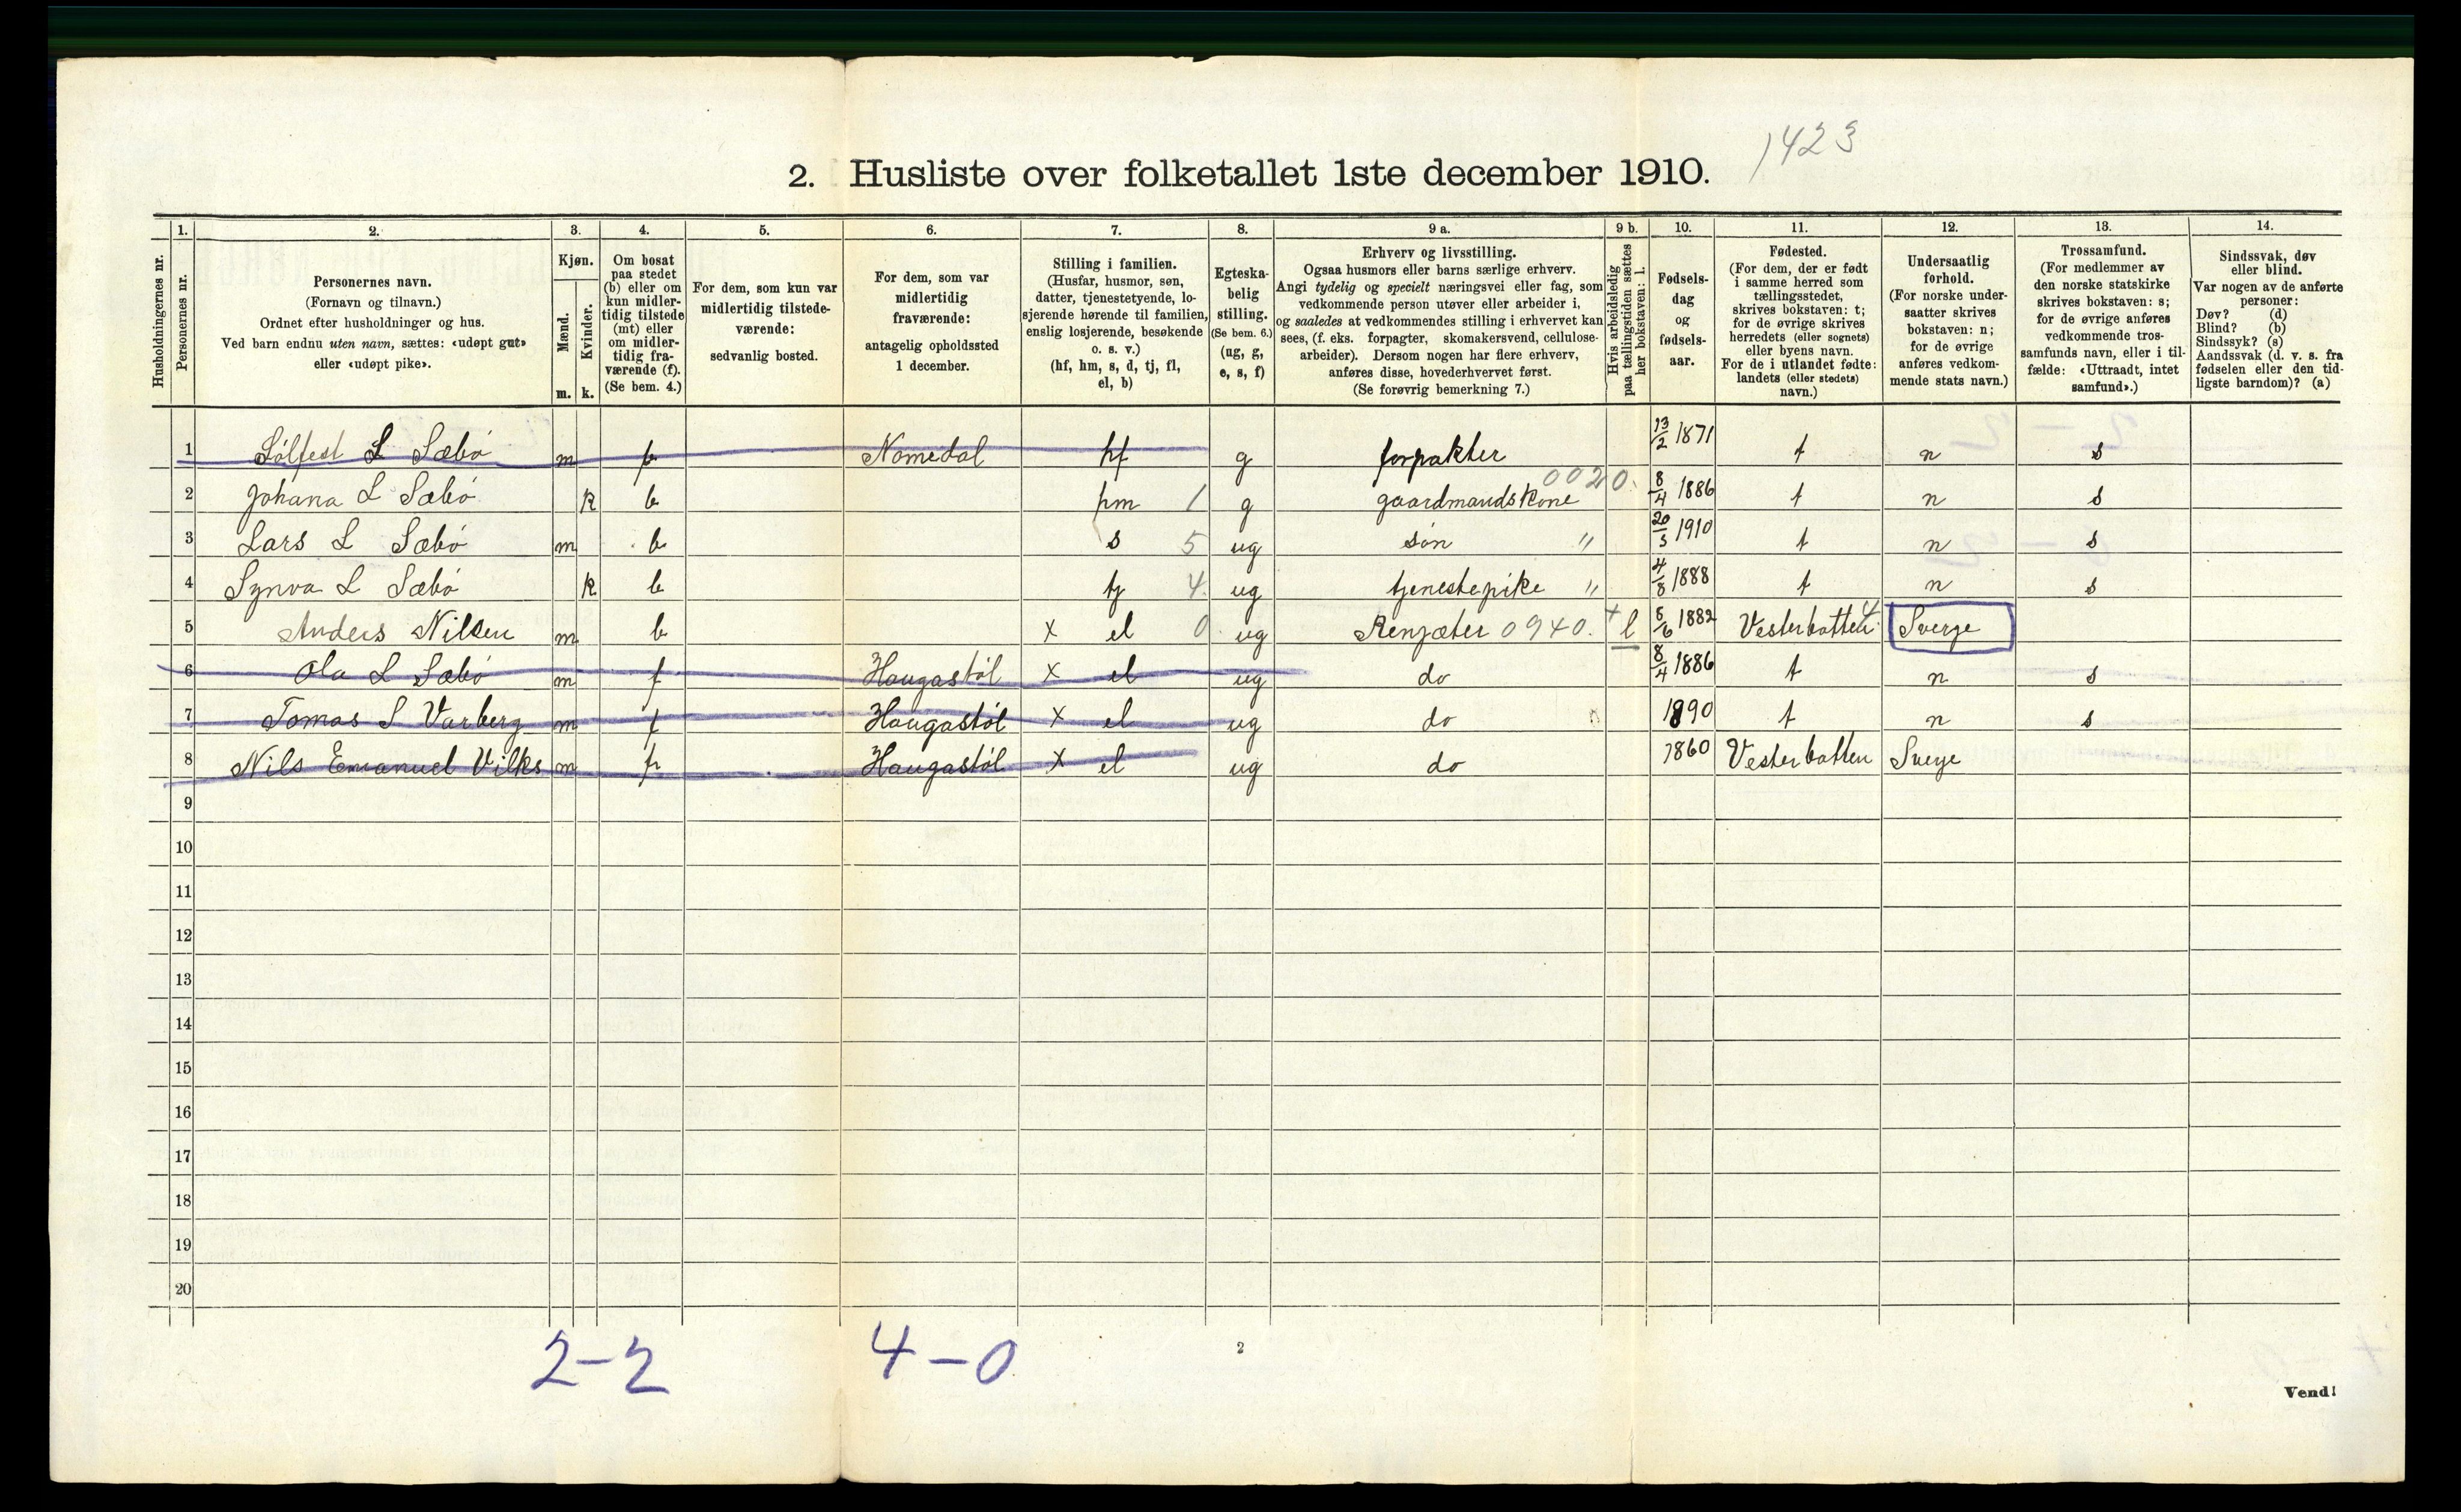 1423
2. Husliste over folketallet 1ste december 1910.
Husholdningernes nr.
1. Personernes nr.
2. Personernes navn.
(Fornavn og tilnavn.)
Ordnet efter husholdninger og hus.
Ved barn endnu uten navn, sættes: «udøpt gut»
eller «udøpt pike».
3. Kjøn.
Mænd. Kvinder.
m. k.
4. Om bosat
paa stedet
(b) eller om
kun midler-
tidig tilstede
(mt) eller
om midler-
tidig fra-
værende (f).
(Se bem. 4.)
5. For dem, som kun var
midlertidig tilstede-
værende:
sedvanlig bosted.
6. For dem, som var
midlertidig
fraværende:
antagelig opholdssted
1 december.
7. Stilling i familien.
(Husfar, husmor, søn,
datter, tjenestetyende, lo-
sjerende hørende til familien,
enslig losjerende, besøkende
o. s. v.)
(hf, hm, s, d, tj, fl,
el, b)
8. Egteska-
belig
stilling.
(Se bem. 6.)
(ug, g,
e, s, f)
9 a. Erhverv og livsstilling.
Ogsaa husmors eller barns særlige erhverv.
Angi tydelig og specielt næringsvei eller fag, som
vedkommende person utøver eller arbeider i,
og saaledes at vedkommendes stilling i erhvervet kan
sees, (f. eks. forpagter, skomakersvend, cellulose-
arbeider). Dersom nogen har flere erhverv,
anføres disse, hovederhvervet først.
(Se forøvrig bemerkning 7.)
9 b. Hvis arbeidsledig
paa tællingstiden sættes
her bokstaven: l.
10. Fødsels-
dag
og
fødsels-
aar.
11. Fødested.
(For dem, der er født
i samme herred som
tællingsstedet,
skrives bokstaven: t;
for de øvrige skrives
herredets (eller sognets)
eller byens navn.
For de i utlandet fødte:
landets (eller stedets)
navn.)
12. Undersaatlig
forhold.
(For norske under-
saatter skrives
bokstaven: n;
for de øvrige
anføres vedkom-
mende stats navn.)
13. Trossamfund.
(For medlemmer av
den norske statskirke
skrives bokstaven: s;
for de øvrige anføres
vedkommende tros-
samfunds navn, eller i til-
fælde: «Uttraadt, intet
samfund».)
14. Sindssvak, døv
eller blind.
Var nogen av de anførte
personer:
Døv? (d)
Blind? (b)
Sindssyk? (s)
Aandssvak (d. v. s. fra
fødselen eller den tid-
ligste barndom)? (a)
1 Sölfest L Sæbö m f Nomedal hf g forpakter 13/2 1871 t n s
2 Johana L Sæbö k b hm 1 g gaardmandskone 0020. 8/4 1886 t n s
3 Lars L Sæbö m b s 5 ug sön " 20/5 1910 t n s
4 Synva L Sæbö k b tj 4. ug tjenestepike " 4/8 1888 t n s
5 Anders Nilsen m b x el 0. ug Rengæter 0940. + l 8/6 1882 Vesterbotten 4 Sverge
6 Ola L Sæbö m f Haugastöl x el ug do 8/4 1886 t n s
7 Tomas S Varberg m f Haugastöl x el ug do 1890 t n s
8 Nils Emanuel Vilks m f Haugastöl x el ug do 1860 Vesterbotten Sverje
9
10
11
12
13
14
15
16
17
18
19
20
2-2 4-0
2
Vend!